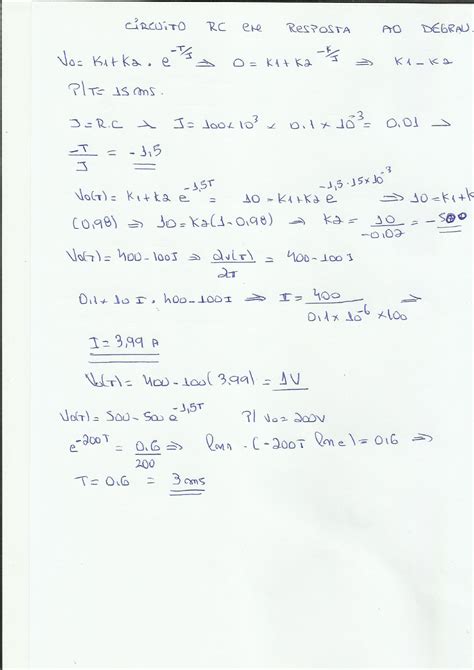 CÍRCUITO RC EM RESPOSTA AO DEGRAU.
Vo = K1 + K2 . e^-T/J ⇒ 0 = K1 + K2 ⇒ K1 - K2
P/ T = 15 ms.
J = R.C J = 100 x 10^3 x 0,1 x 10^-3 = 0.01 →
-T/J = -1,5
Vo(T) = K1 + K2 e^-1,5T = 10 = K1 + K2 e^-1,5 . 15 x 10^-3 ⇒ 10 = K1 + K
(0,98) ⇒ 10 = K2(1-0,98) ⇒ K2 = 10/-0,02 = -500
Vo(T) = 400 - 100I ⇒ dv(T)/dT = 400 - 100I
0,1 x 10 I . 400 - 100I ⇒ I = 400/0,1 x 10^-6 x 100
I = 3,99 A
Vo(T) = 400 - 100(3,99) = 1V
Vo(T) = 500 - 500 e^-1,5T P/ Vo = 200V
e^-200T = 0.6/200 ⇒ . (-200T ln e) = 0,6 ⇒
T = 0.6 = 3 ms